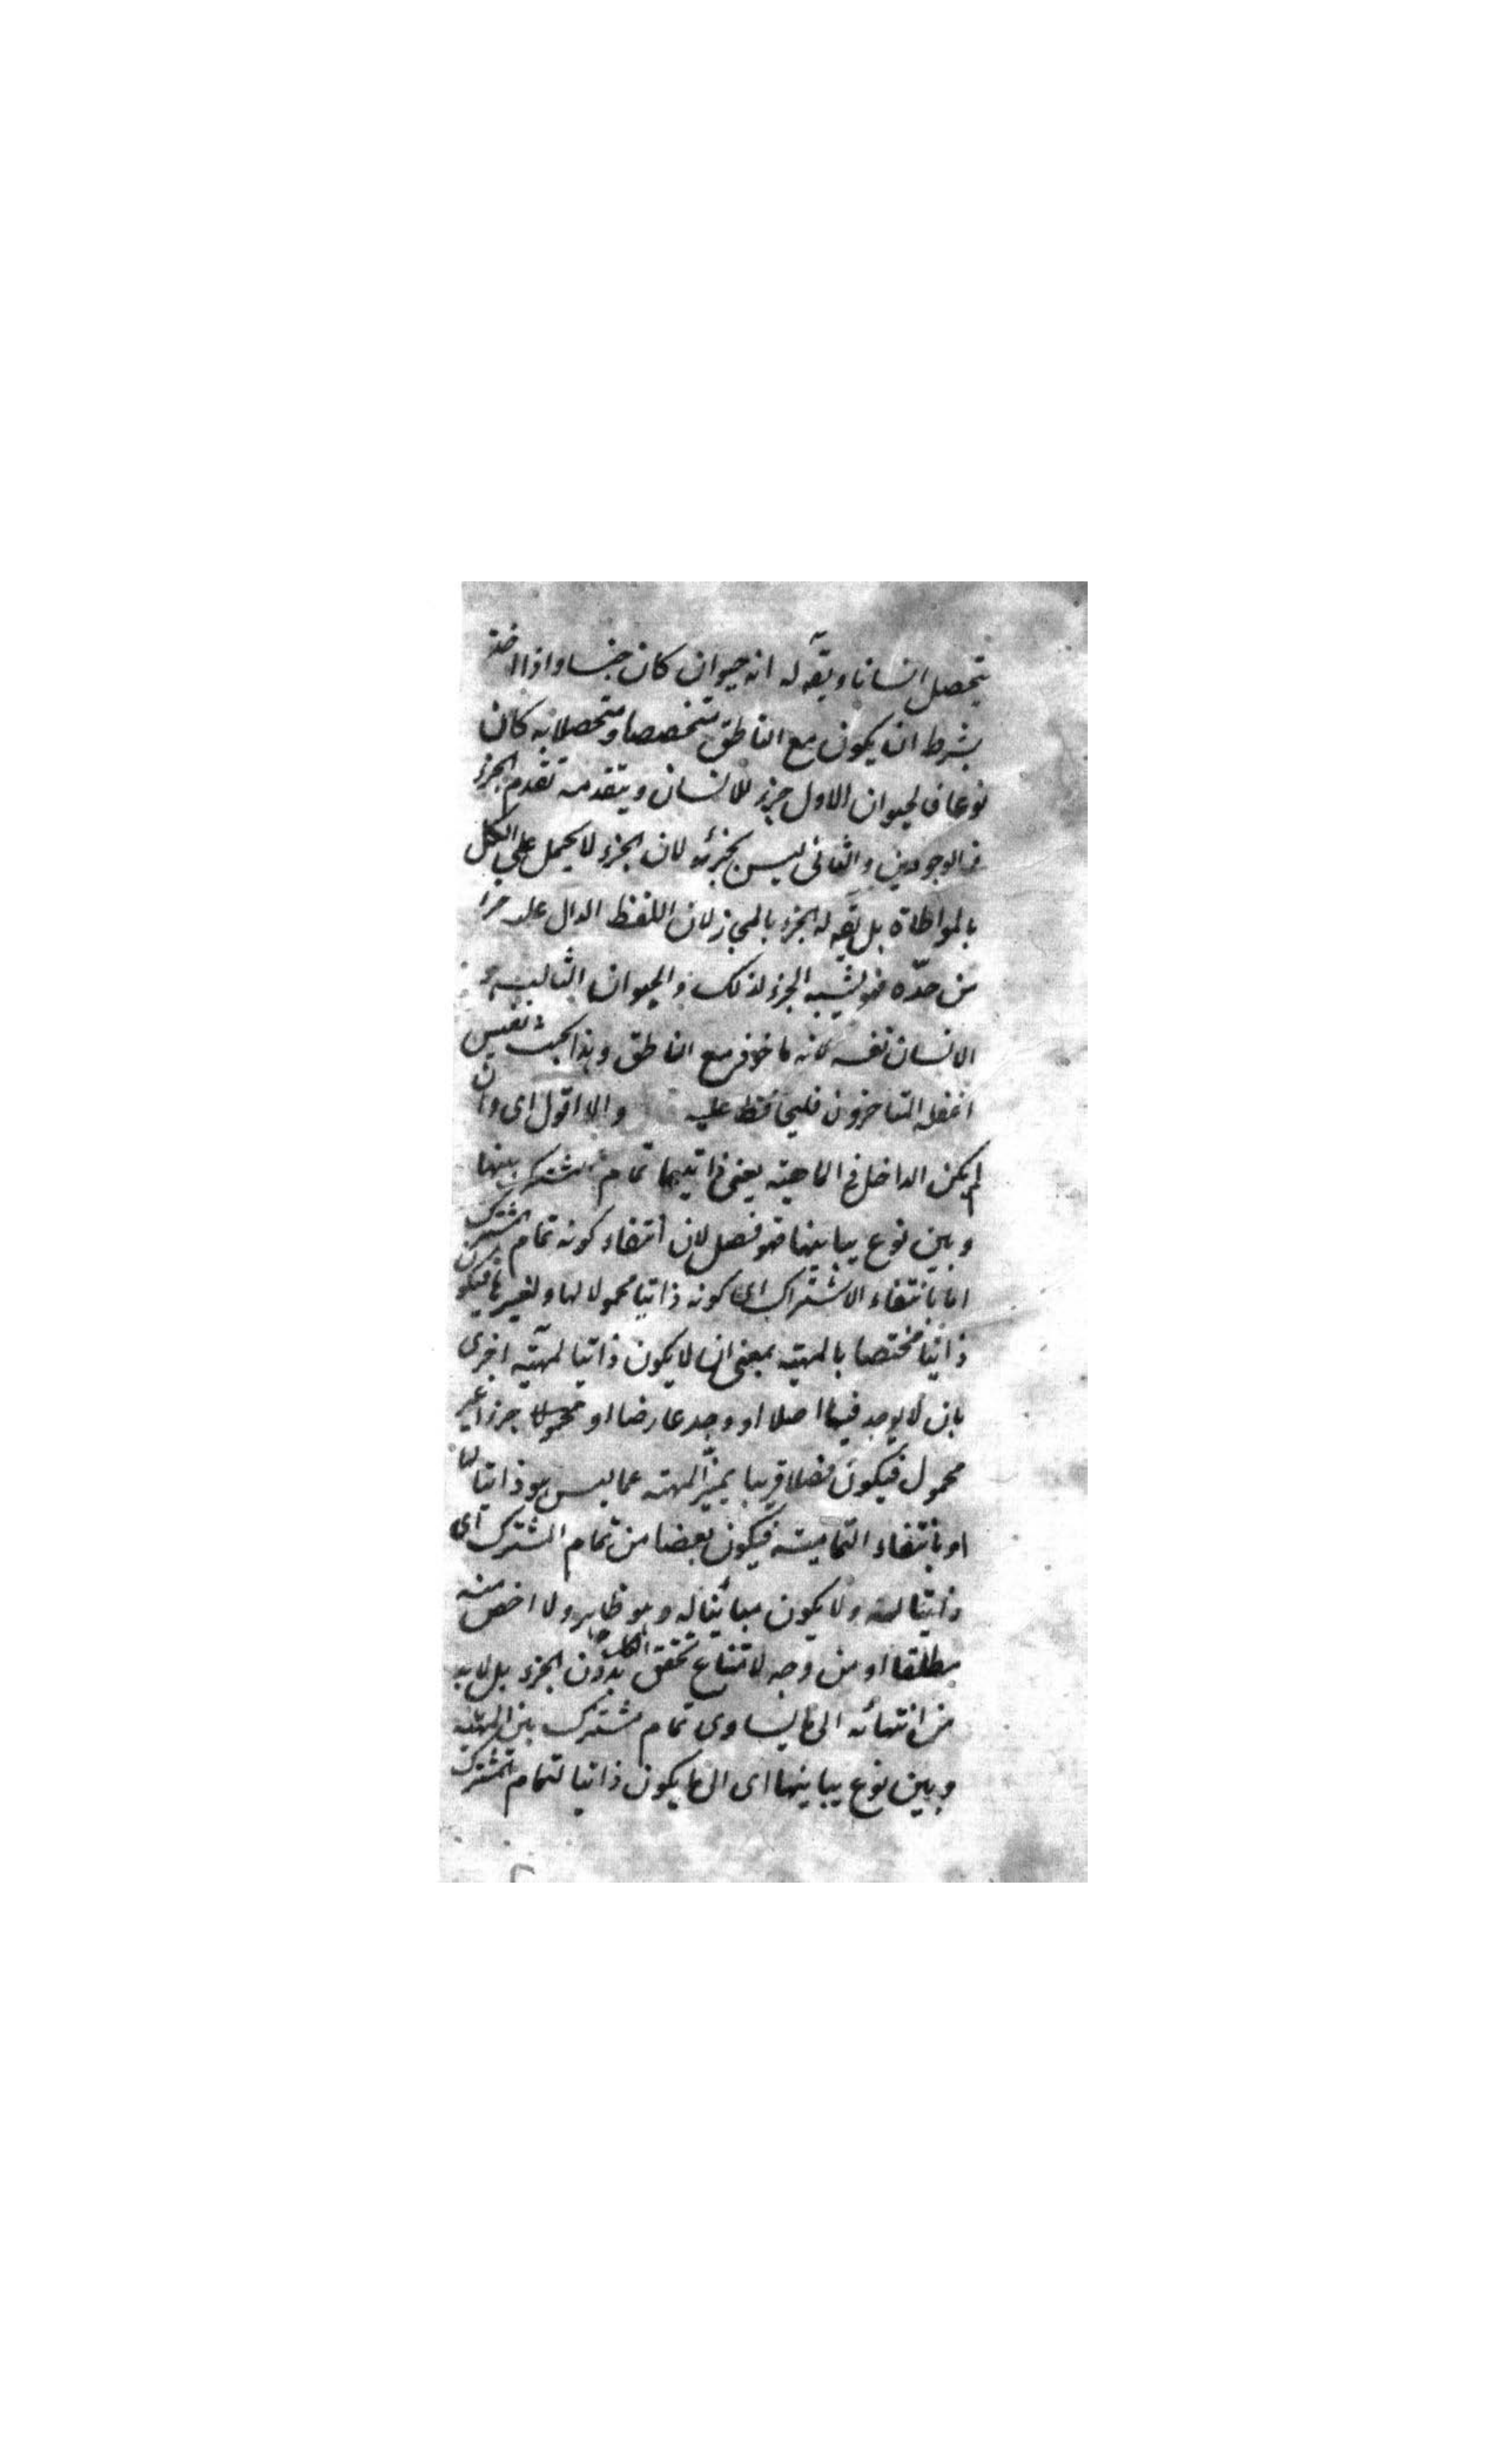 يتحصل انسانا ويقه له انه حيوان كان جنسا واذا اخذ
بشرط ان يكون مع الناطق متخصصا ومتحصلا به كان
نوعا فالحيوان الاول جزء للانسان ويتقدمه تقدم الجزء
فى الوجودين والثانى ليس بجزئه لان الجزء لا يحمل على الكل
بالمواطاة بل يقه له الجزء بالمجاز لان اللفظ الدال عليه جزء
من حدّه فهو يشبه الجزء لذلك والحيوان الثالث
الانسان نفسه لانه ماخوذ مع الناطق وهذا بحث نفيس
اغفله المتاخرون فليحافظ عليه والا اقول اى وان
لم يكن الداخل فى الماهية يعنى ذاتيها تمام المشترك بينها
وبين نوع يباينها فهو فصل لان انتفاء كونه تمام المشترك
اما بانتفاء الاشتراك اى كونه ذاتيا محمولا لها ولغيرها فيكون
ذاتيا مختصا بالمهية بمعنى ان لا يكون ذاتيا لمهية اخرى
بان لا يوجد فيها اصلا او وجد عارضا او محمولا جزءا غير
محمول فيكون فصلا قريبا يميز المهية عما ليس هو ذاتيا لها
او بانتفاء التمامية فيكون بعضا من تمام المشترك اى
ذاتيا له ولا يكون مباينا له وهو ظاهر ولا اخص منه
مطلقا او من وجه لامتناع تحقق الكل بدون الجزء بل لا بد
من انتهائه الى ما يساوى تمام مشترك بين المهية
وبين نوع يباينها اى الى ما يكون ذاتيا لتمام المشترك